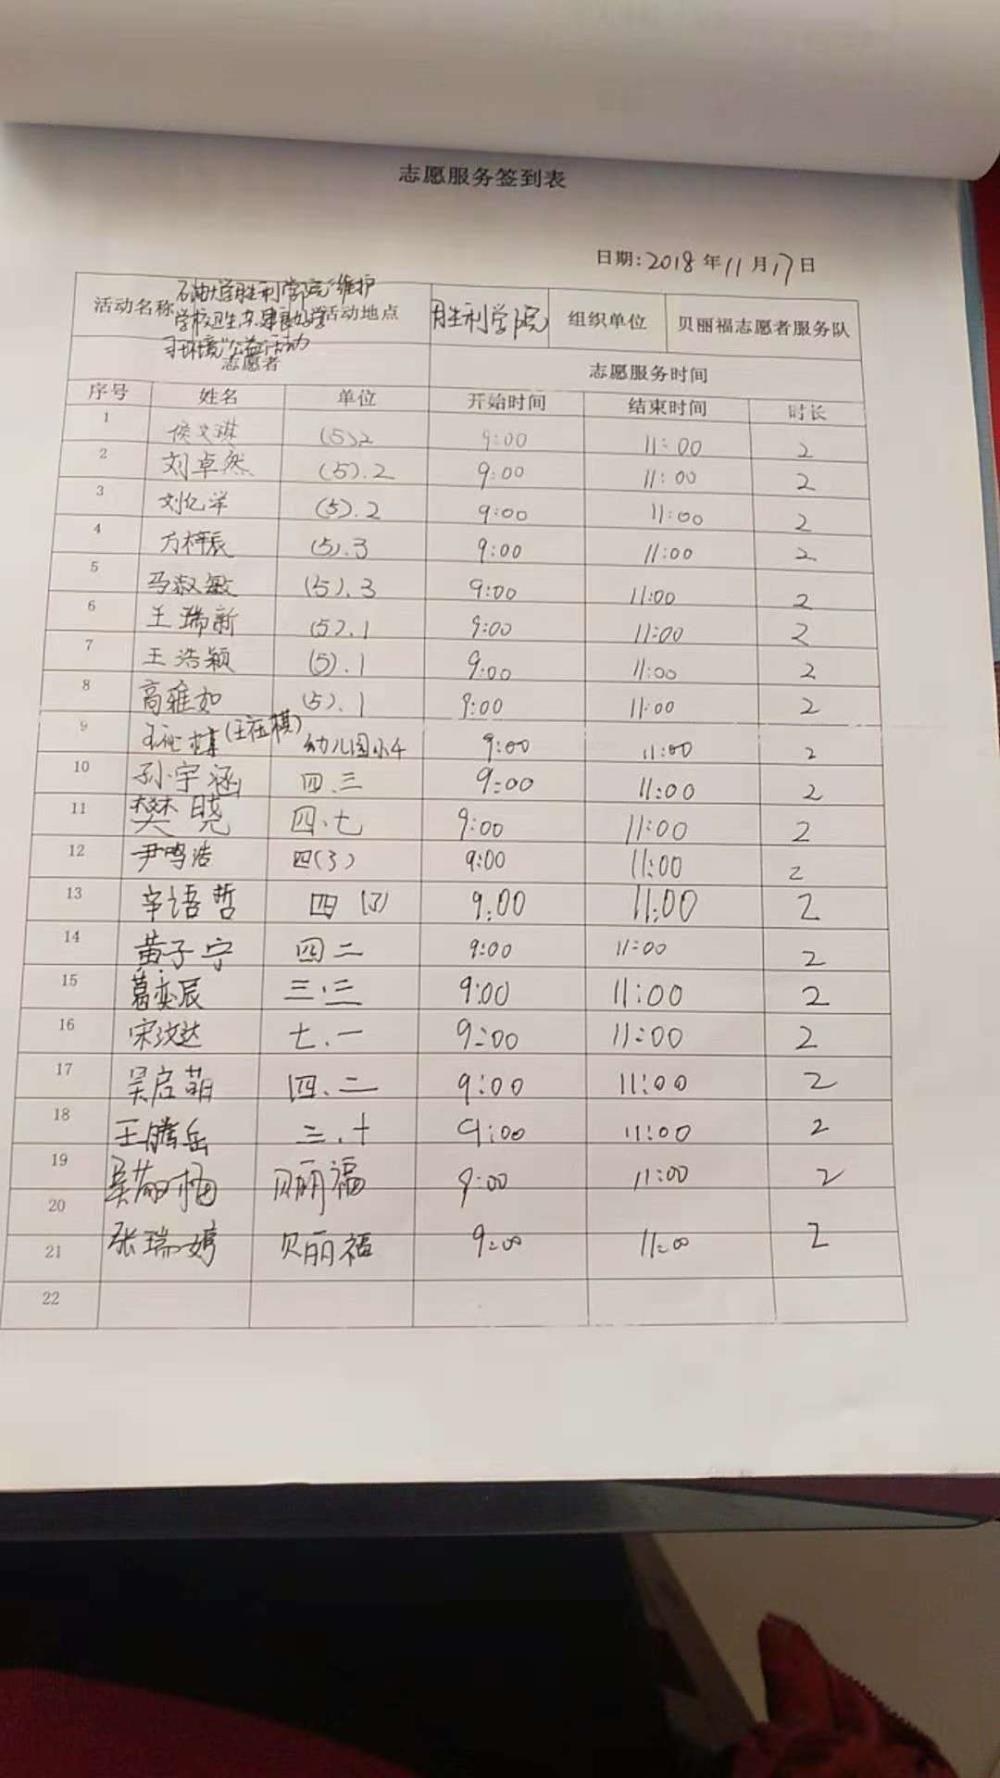 志愿服务签到表
日期:2018年11月17日
活动名称 石油大学胜利学院"维护
学校卫生,共建良好学
习环境"公益活动
活动地点 胜利学院 组织单位 贝丽福志愿者服务队
志愿者 志愿服务时间
序号 姓名 单位 开始时间 结束时间 时长
1 侯文琪 (5)2 9:00 11:00 2
2 刘卓然 (5).2 9:00 11:00 2
3 刘亿洋 (5).2 9:00 11:00 2
4 方梓辰 (5).3 9:00 11:00 2
5 马淑敏 (5).3 9:00 11:00 2
6 王瑞新 (5).1 9:00 11:00 2
7 王浩颖 (5).1 9:00 11:00 2
8 高雅如 (5).1 9:00 11:00 2
9 幼儿园小4 9:00 11:00 2
10 孙宇涵 四.三 9:00 11:00 2
11 樊晓 四.七 9:00 11:00 2
12 尹鸣浩 四(3) 9:00 11:00 2
13 辛语哲 四(3) 9:00 11:00 2
14 黄子宁 四二 9:00 11:00 2
15 葛奕辰 三.三 9:00 11:00 2
16 宋汶达 七.一 9:00 11:00 2
17 吴启萌 四.二 9:00 11:00 2
18 王腾岳 三.十 9:00 11:00 2
19 贝丽福 9:00 11:00 2
20
21 张瑞婷 贝丽福 9:00 11:00 2
22